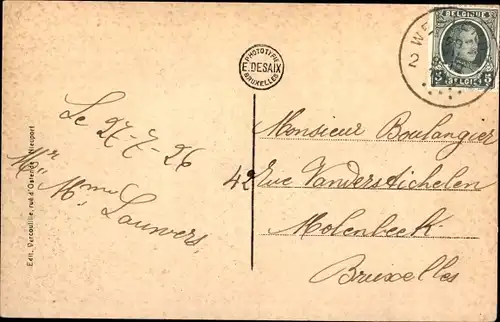 PHOTOTYPIE
E. DESAIX
BRUXELLES
BELGIQUE
5 5
BELGIË
WE
2
Le 27-7-26
Mr. Mme Lauwers,
Monsieur Boulangier
42 Rue Vanderstichelen
Molenbeek
Bruxelles
Edit. Vercouillie, rue d'Ostende Nieuport